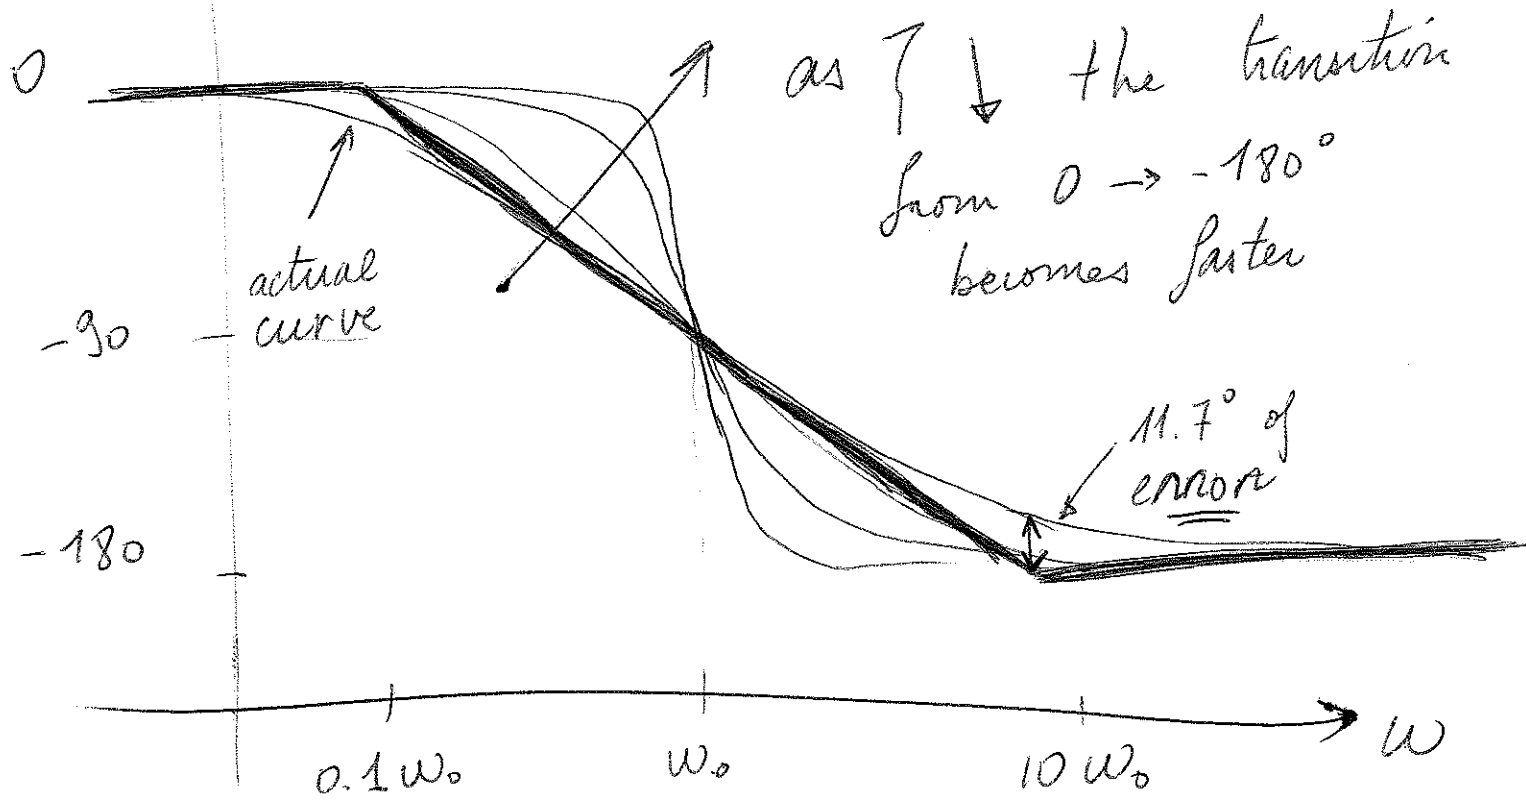 0
as ζ ↓ the transition
from 0 → -180°
becomes faster
actual
curve
-90
11.7° of
error
-180
0.1 ω₀
ω₀
10 ω₀
ω